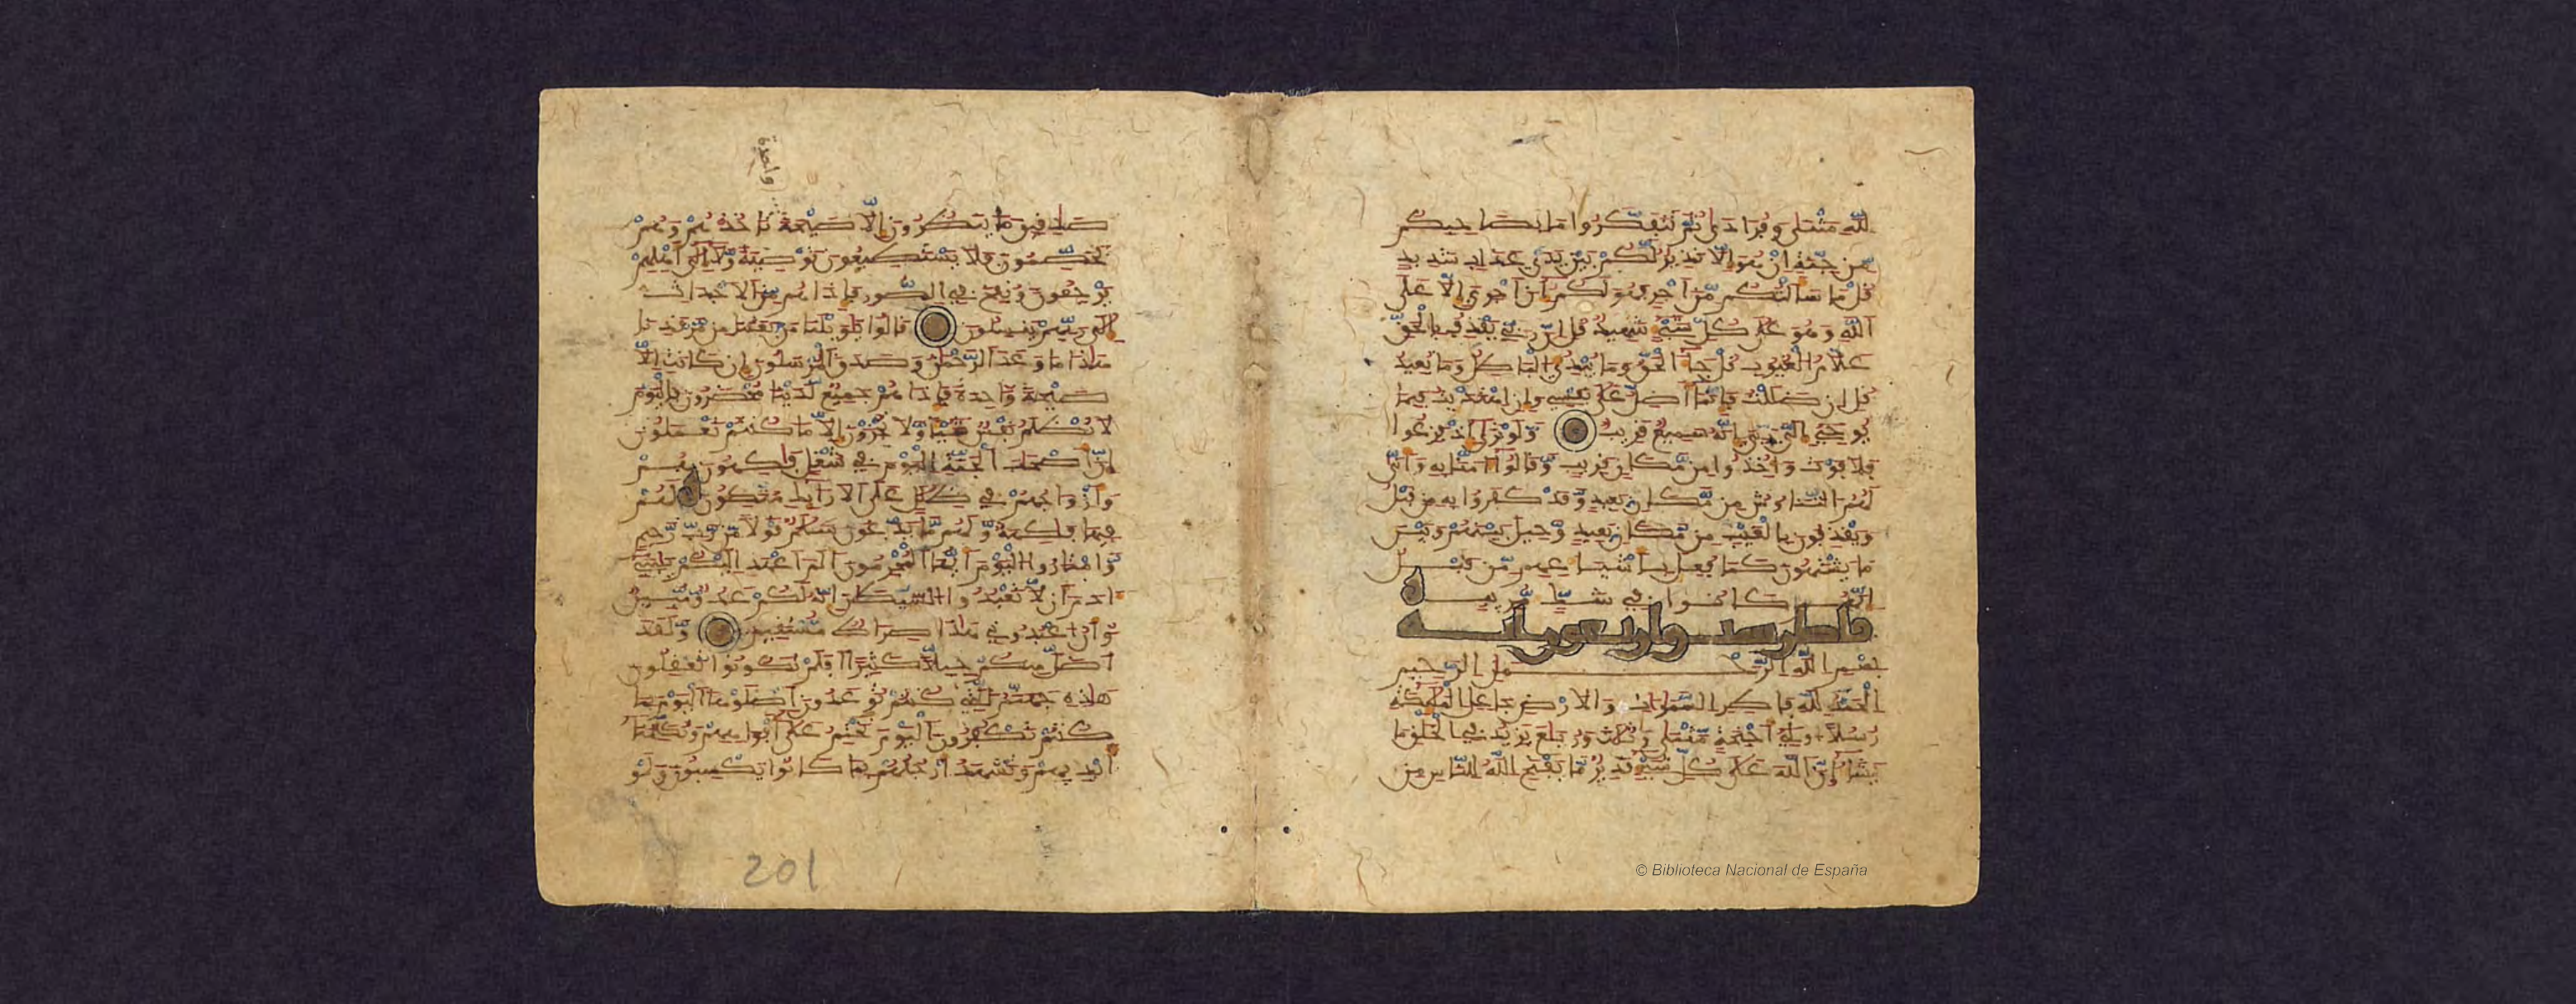 لله مثنى وفرادى ثم تتفكروا ما بصاحبكم
من جنة ان هو الا نذير لكم بين يدي عذاب شديد
قل ما سألتكم من اجر فهو لكم ان اجري الا على
الله وهو على كل شيء شهيد قل ان ربي يقذف بالحق
علام الغيوب قل جاء الحق وما يبدئ الباطل وما يعيد
قل ان ضللت فإنما أضل على نفسي وان اهتديت فبما
يوحي إلي ربي انه سميع قريب ولو ترى اذ فزعوا
فلا فوت واخذوا من مكان قريب وقالوا ءامنا به وانى
لهم التناوش من مكان بعيد وقد كفروا به من قبل
ويقذفون بالغيب من مكان بعيد وحيل بينهم وبين
ما يشتهون كما فعل بأشياعهم من قبل
انهم كانوا في شك مريب
فاطر ست واربعون اية
بسم الله الرحمن الرحيم
الحمد لله فاطر السموات والارض جاعل الملئكة
رسلا اولي اجنحة مثنى وثلث وربع يزيد في الخلق ما
يشاء ان الله على كل شيء قدير ما يفتح الله للناس من
© Biblioteca Nacional de España
واحدة
صادقين ما ينظرون إلا صيحة تأخذهم وهم
يخصمون فلا يستطيعون توصية ولا إلى أهلهم
يرجعون ونفخ في الصور فإذا هم من الاجداث
إلى ربهم ينسلون قالوا يا ويلنا من بعثنا من مرقدنا
هذا ما وعد الرحمن وصدق المرسلون إن كانت إلا
صيحة واحدة فإذا هم جميع لدينا محضرون فاليوم
لا تظلم نفس شيئا ولا تجزون إلا ما كنتم تعملون
إن أصحاب الجنة اليوم في شغل فاكهون هم
وأزواجهم في ظلل على الارائك متكئون لهم
فيها فاكهة ولهم ما يدعون سلام قولا من رب رحيم
وامتازوا اليوم أيها المجرمون ألم أعهد اليكم يا بني
ءادم أن لا تعبدوا الشيطان انه لكم عدو مبين
وأن اعبدوني هذا صراط مستقيم ولقد
أضل منكم جبلا كثيرا افلم تكونوا تعقلون
هذه جهنم التي كنتم توعدون اصلوها اليوم بما
كنتم تكفرون اليوم نختم على أفواههم وتكلمنا
أيديهم وتشهد أرجلهم بما كانوا يكسبون ولو
201